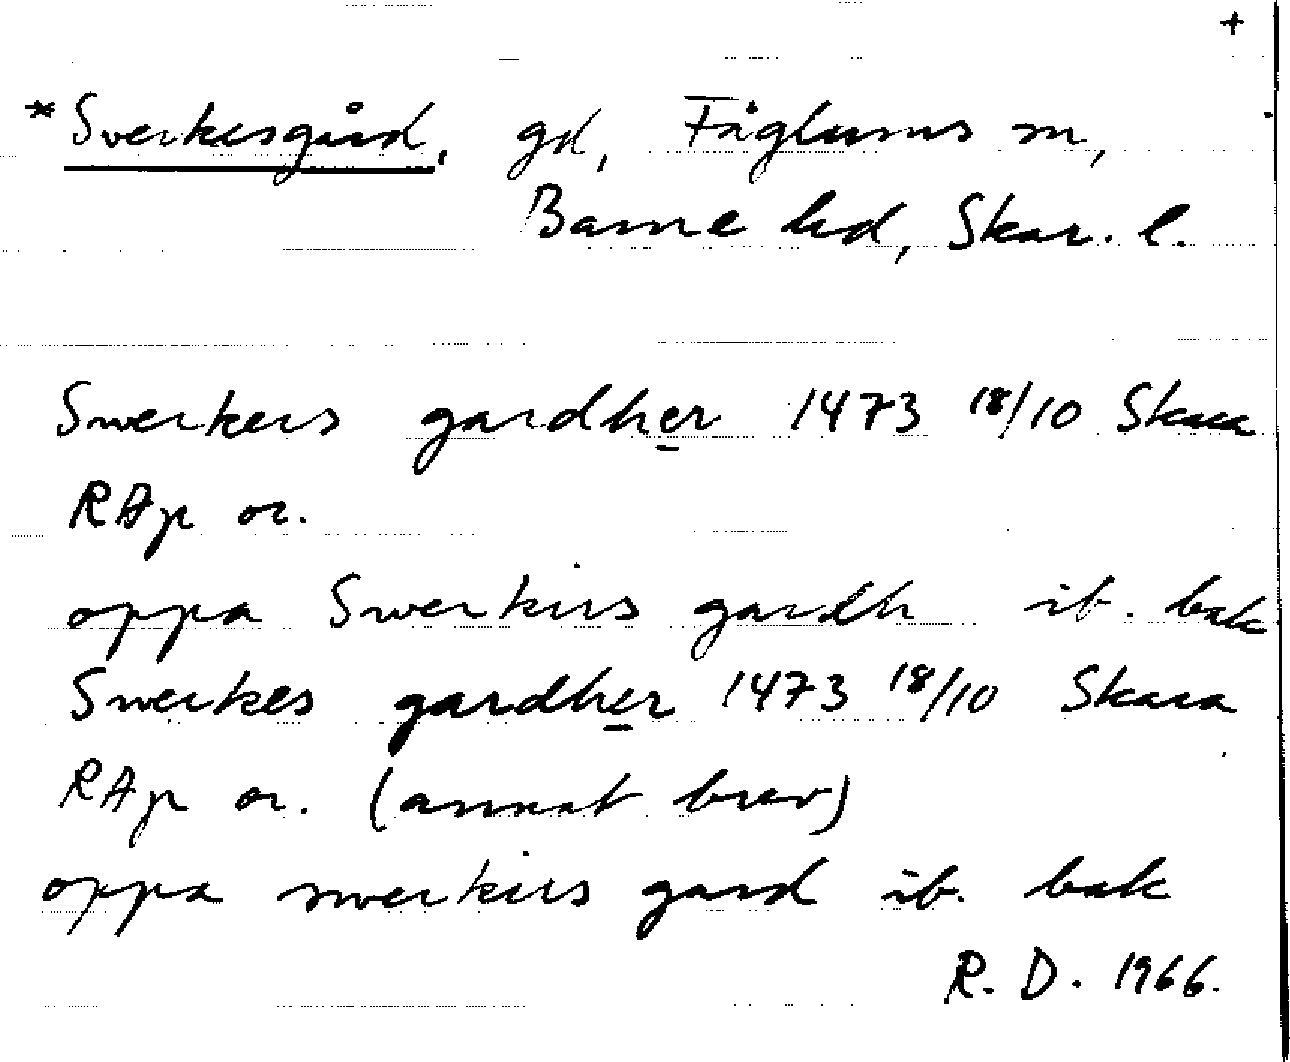 +
*Sverkersgård, gd, Fåglums sn,
Barne hd, Skar. l.
Swerkers gardher 1473 18/10 Skara
RAp or.
oppa Swerkirs gardh ib. bak
Swerkes gardher 1473 18/10 Skara
RAp or. (annat brev)
oppa swerkirs gard ib. bak
R. D. 1966.